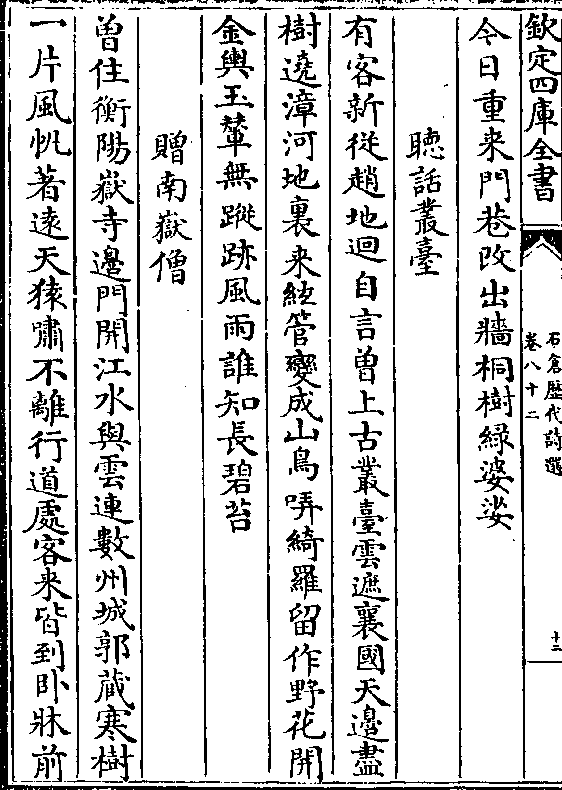 欽定四庫全書
石倉歴代詩選
卷八十二
十二
今日重来門巷改出牆桐樹緑婆娑
聴話叢臺
有客新從趙地迴自言曽上古叢臺雲遮襄國天邉盡
樹遶漳河地裏来絃管變成山鳥哢綺羅留作野花開
金輿玉輦無蹤跡風雨誰知長碧苔
贈南嶽僧
曽住衡陽嶽寺邉門開江水與雲連數州城郭藏寒樹
一片風帆著逺天猿嘯不離行道處客来皆到卧牀前